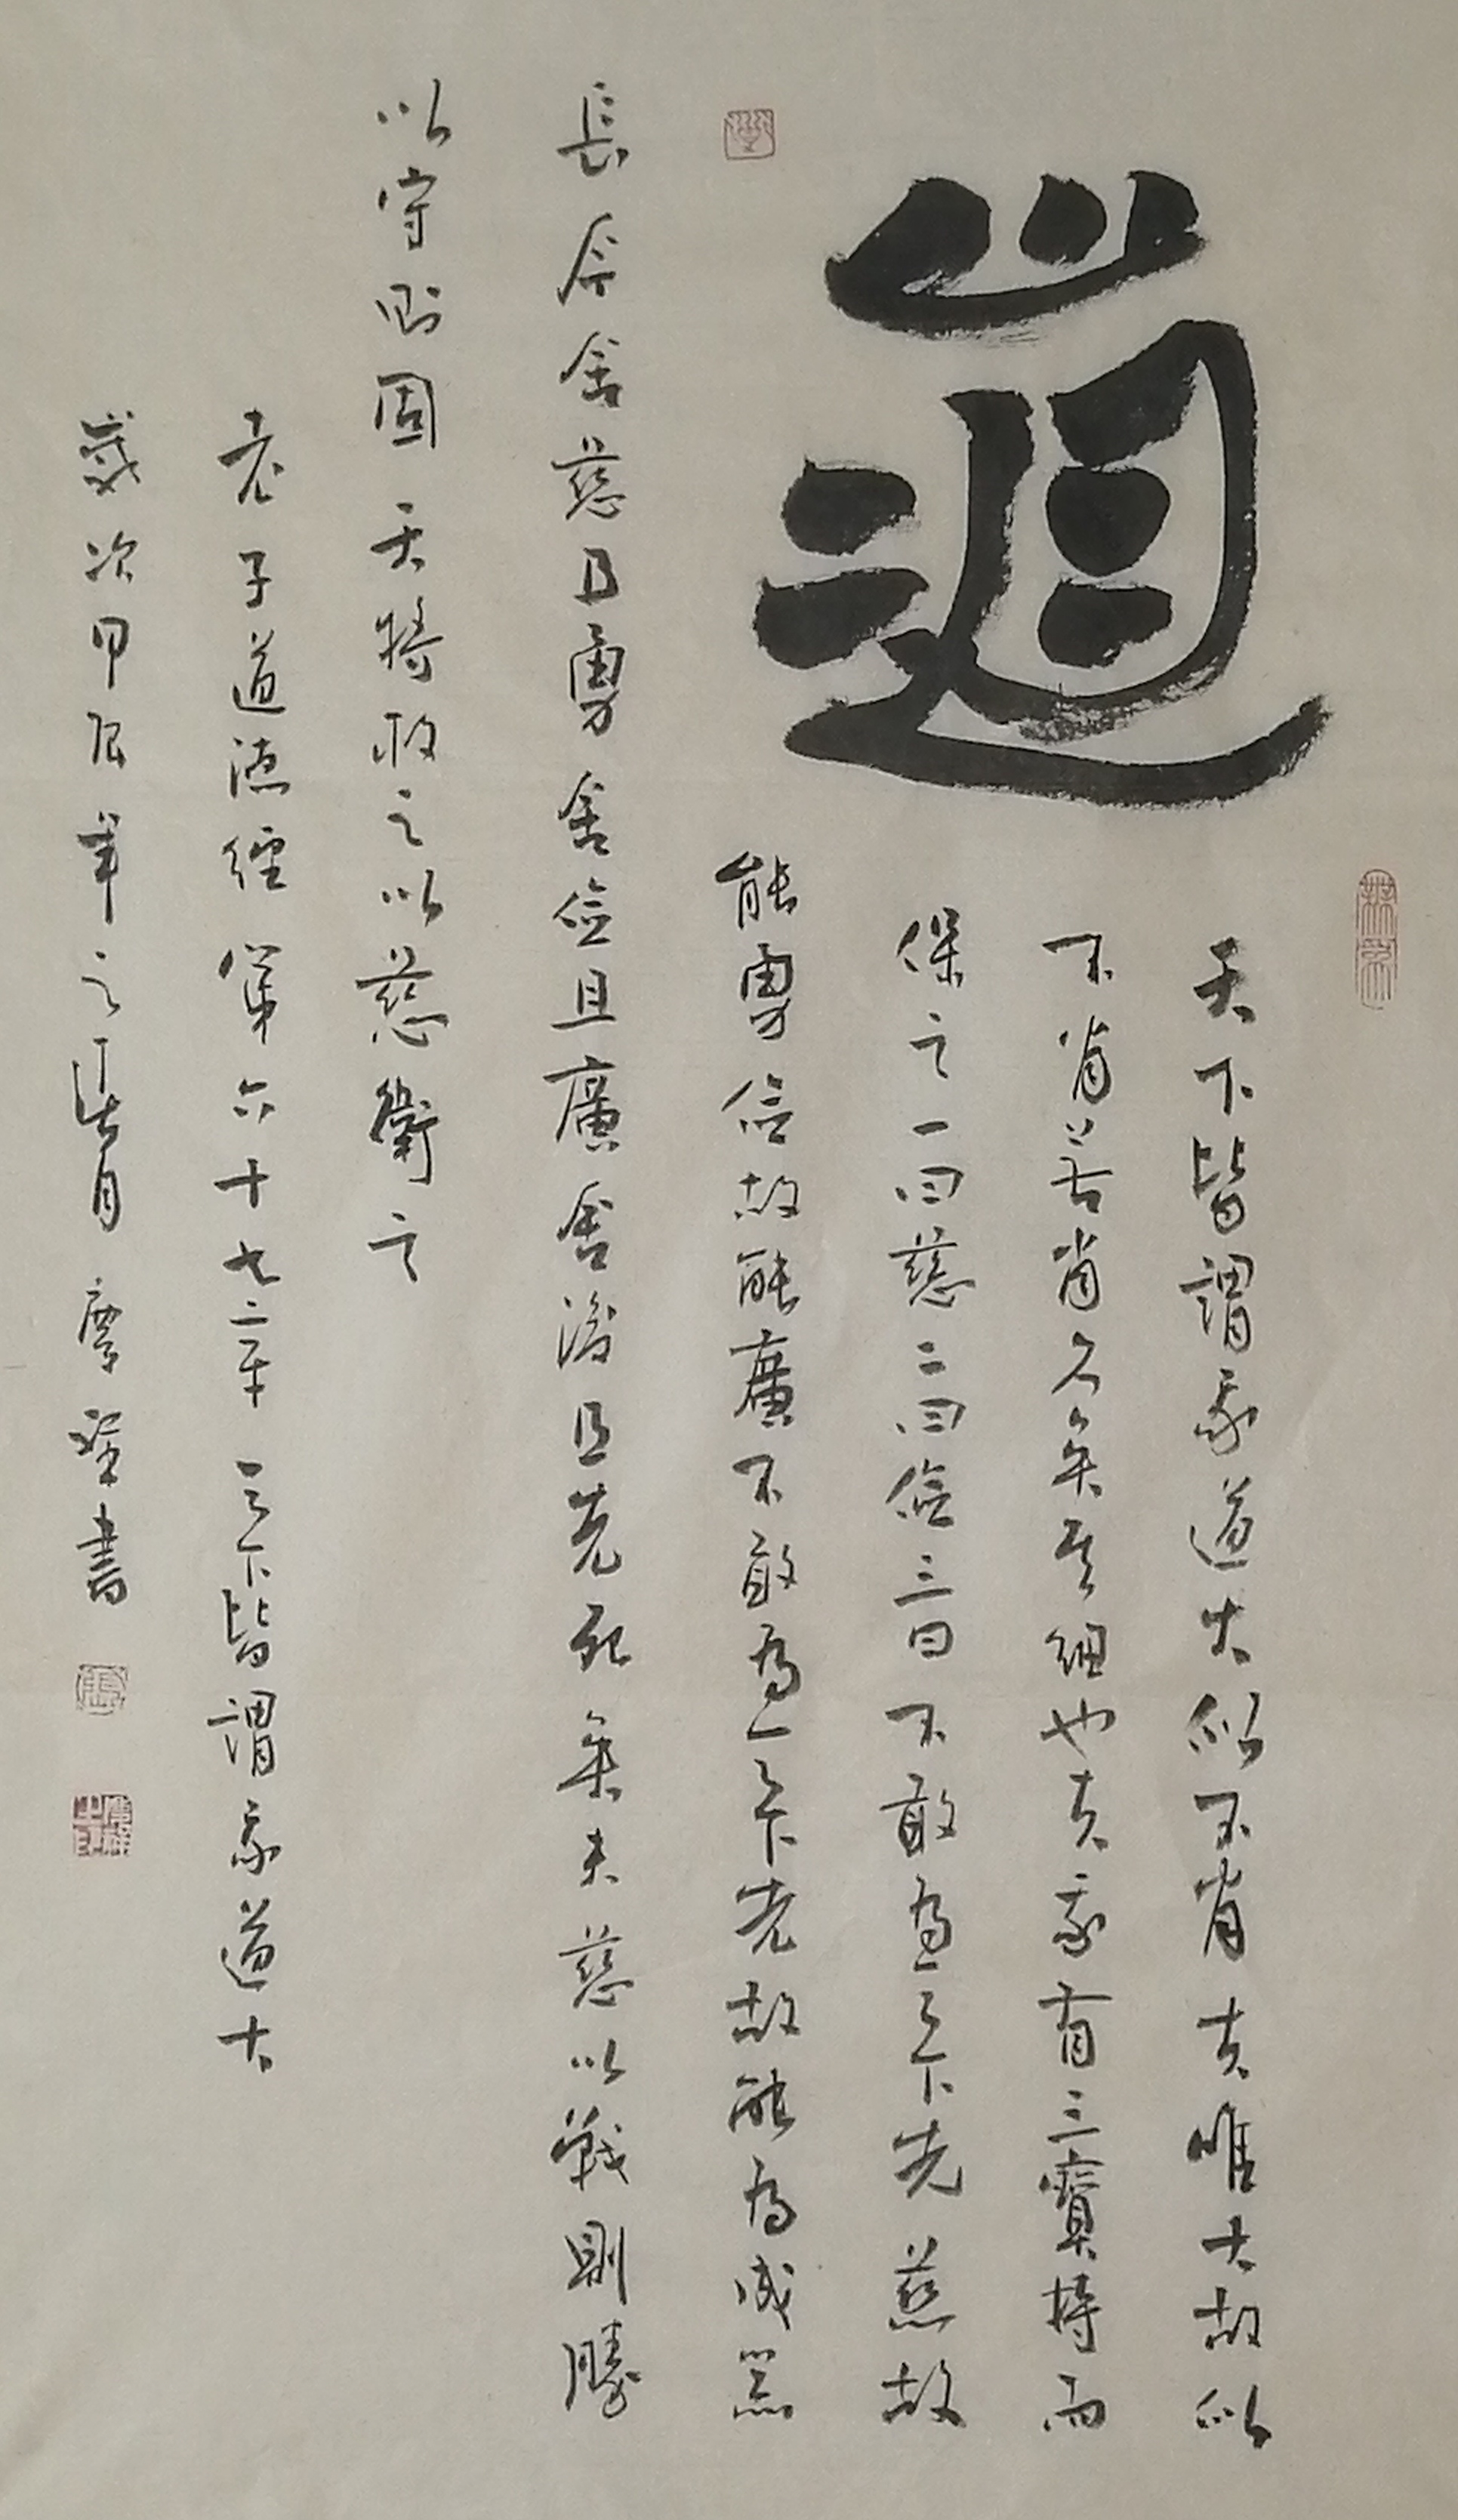 道
天下皆謂我道大似不肖夫唯大故似
不肖若肖久矣其細也夫我有三寶持而
保之一曰慈二曰儉三曰不敢為天下先慈故
能勇儉故能廣不敢為天下先故能為成器
長今舍慈且勇舍儉且廣舍後且先死矣夫慈以戰則勝
以守則固天將救之以慈衛之
老子道德經第六十七章天下皆謂我道大
歲次甲辰年之 月 書